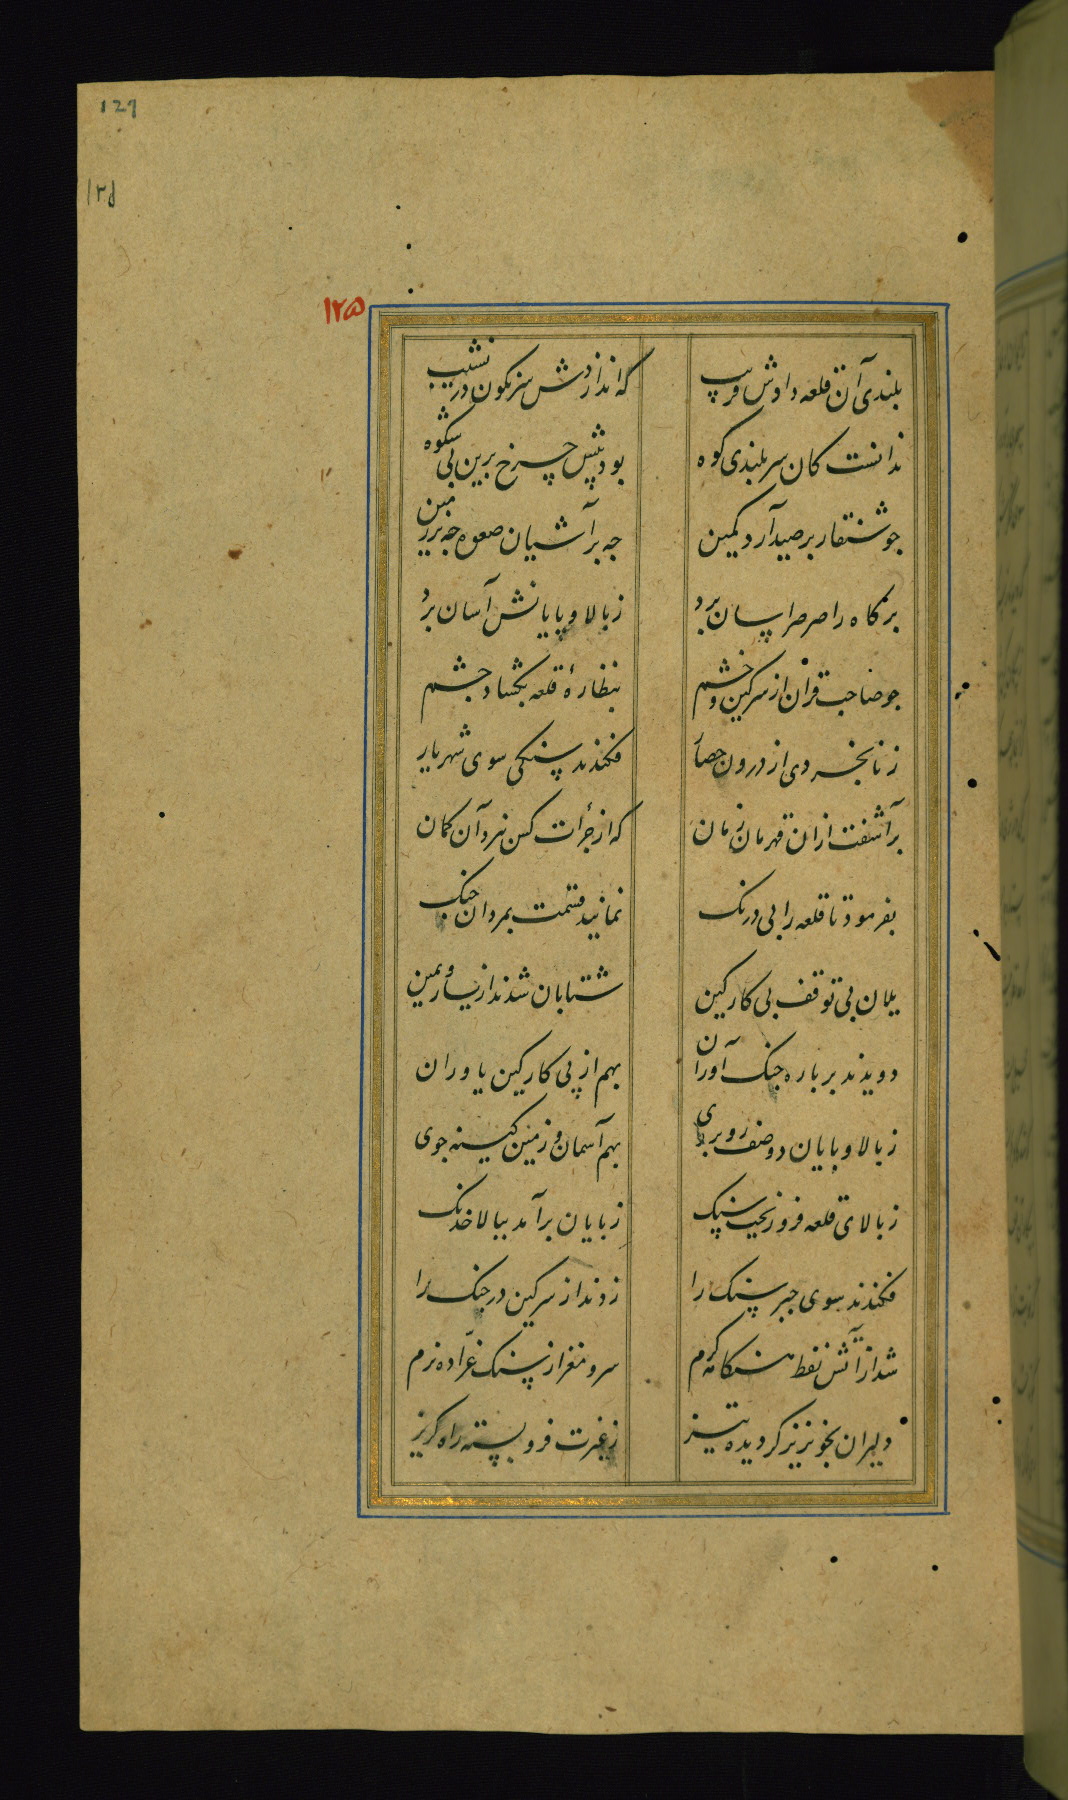 129
۱۲۵
۱۲۵
بلندی آن قلعه دادش فریب که اندازدش سرنکون در نشیب
ندانست کان سر بلندی کوه بود پیش چرخ برین بی شکوه
جو شنقار بر صید آرد کمین جه بر آشیان صعوه جه بر زمین
بر کاه را صرصر اسان برد ز بالا و پایانش آسان برد
جو صاحب قران از سر کین و خشم بنظارهٔ قلعه بکشاد جشم
ز نابخردی از درون حصار فکندند سنکی سوی شهریار
بر آشفت ازان قهرمان زمان که از جرأت کس نبرد آن کمان
بفرمود تا قلعه را بی درنک نمایند قسمت بمردان جنک
یلان بی توقف بی کار کین شتابان شدند از یسار و یمین
دویدند بر باره جنک آوران بهم از پی کار کین یاوران
ز بالا و پایان دو صف روبروی بهم آسمان و زمین کینه جوی
ز بالای قلعه فرو ریخت سنک ز پایان برآمد ببالا خدنک
فکندند سوی سنک را زدند از سر کین در جنک را
شد از آتش نفط هنکامه کرم سر و مغز از سنک عرّاده نرم
دلیران بخونریز کردیده تیز ز غیرت فرو بسته راه کریز